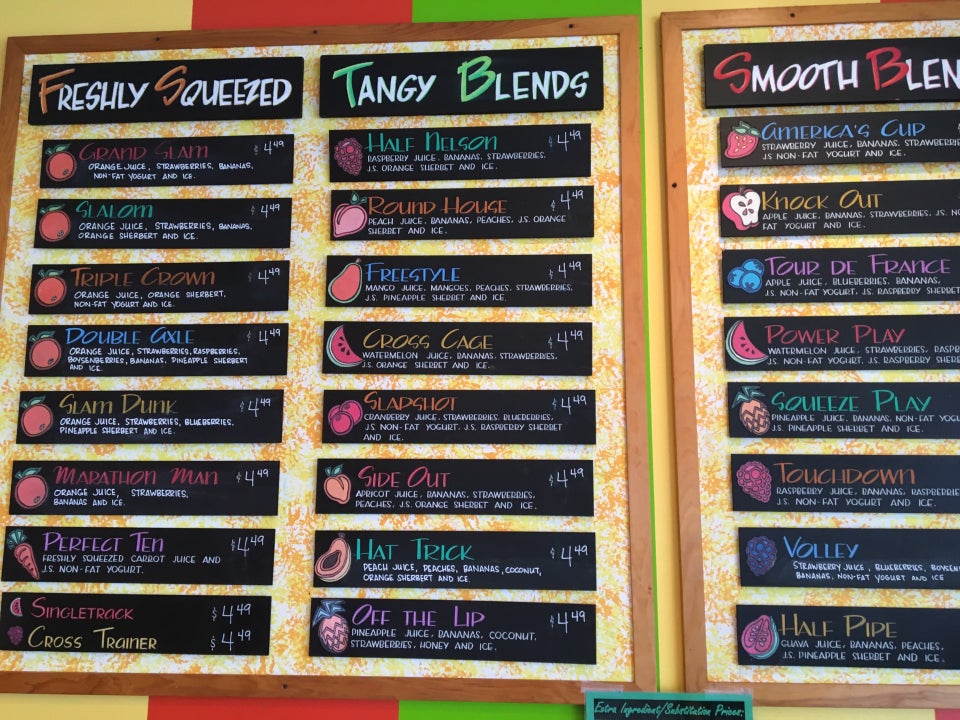 FRESHLY SQUEEZED
GRAND SLAM $4.49
ORANGE JUICE, STRAWBERRIES, BANANAS,
NON-FAT YOGURT AND ICE.
SLALOM $4.49
ORANGE JUICE, STRAWBERRIES, BANANAS,
ORANGE SHERBERT AND ICE.
TRIPLE CROWN $4.49
ORANGE JUICE, ORANGE SHERBERT,
NON-FAT YOGURT AND ICE.
DOUBLE AXLE $4.49
ORANGE JUICE, STRAWBERRIES, RASPBERRIES,
BOYSENBERRIES, BANANAS, PINEAPPLE SHERBERT
AND ICE.
SLAM DUNK $4.49
ORANGE JUICE, STRAWBERRIES, BLUEBERRIES,
PINEAPPLE SHERBERT AND ICE.
MARATHON MAN $4.49
ORANGE JUICE, STRAWBERRIES,
BANANAS AND ICE.
PERFECT TEN $4.49
FRESHLY SQUEEZED CARROT JUICE AND
J.S. NON-FAT YOGURT.
SINGLETRACK $4.49
CROSS TRAINER $4.49
TANGY BLENDS
HALF NELSON $4.49
RASPBERRY JUICE, BANANAS, STRAWBERRIES,
J.S. ORANGE SHERBET AND ICE.
ROUND HOUSE $4.49
PEACH JUICE, BANANAS, PEACHES, J.S. ORANGE
SHERBET AND ICE.
FREESTYLE $4.49
MANGO JUICE, MANGOES, PEACHES, STRAWBERRIES,
J.S. PINEAPPLE SHERBET AND ICE.
CROSS CAGE $4.49
WATERMELON JUICE, BANANAS, STRAWBERRIES,
J.S. ORANGE SHERBET AND ICE.
SLAPSHOT $4.49
CRANBERRY JUICE, STRAWBERRIES, BLUEBERRIES,
J.S. NON-FAT YOGURT, J.S. RASPBERRY SHERBET
AND ICE.
SIDE OUT $4.49
APRICOT JUICE, BANANAS, STRAWBERRIES,
PEACHES, J.S. ORANGE SHERBET AND ICE.
HAT TRICK $4.49
PEACH JUICE, PEACHES, BANANAS, COCONUT,
ORANGE SHERBET AND ICE.
OFF THE LIP $4.49
PINEAPPLE JUICE, BANANAS, COCONUT,
STRAWBERRIES, HONEY AND ICE.
SMOOTH BLEN
AMERICA'S CUP
STRAWBERRY JUICE, BANANAS, STRAWBERRIES
J.S. NON-FAT YOGURT AND ICE.
KNOCK OUT
APPLE JUICE, BANANAS, STRAWBERRIES, J.S. NO
FAT YOGURT AND ICE.
TOUR DE FRANCE
APPLE JUICE, BLUEBERRIES, BANANAS,
J.S. NON-FAT YOGURT, J.S. RASPBERRY SHERBET
POWER PLAY
WATERMELON JUICE, STRAWBERRIES, RASPB
J.S. NON-FAT YOGURT, J.S. RASPBERRY SHERB
SQUEEZE PLAY
PINEAPPLE JUICE, BANANAS, NON-FAT YOGU
J.S. PINEAPPLE SHERBET AND ICE.
TOUCHDOWN
RASPBERRY JUICE, BANANAS, RASPBERRIE
J.S. NON-FAT YOGURT AND ICE.
VOLLEY
STRAWBERRY JUICE, BLUEBERRIES, BOYSEN
BANANAS, NON-FAT YOGURT AND ICE
HALF PIPE
GUAVA JUICE, BANANAS, PEACHES,
J.S. PINEAPPLE SHERBET AND ICE.
Extra Ingredient/Substitution Prices: